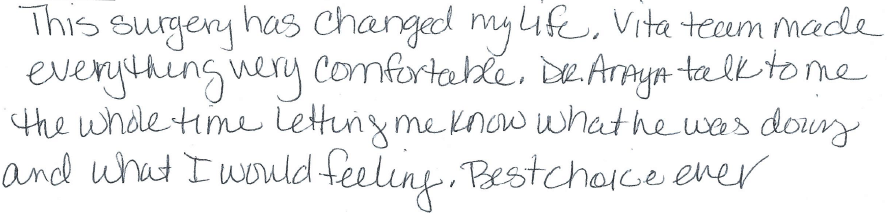 This surgery has changed my life. Vita team made
everything very comfortable. DR. ARAYA talk to me
the whole time letting me know what he was doing
and what I would feeling. Best choice ever